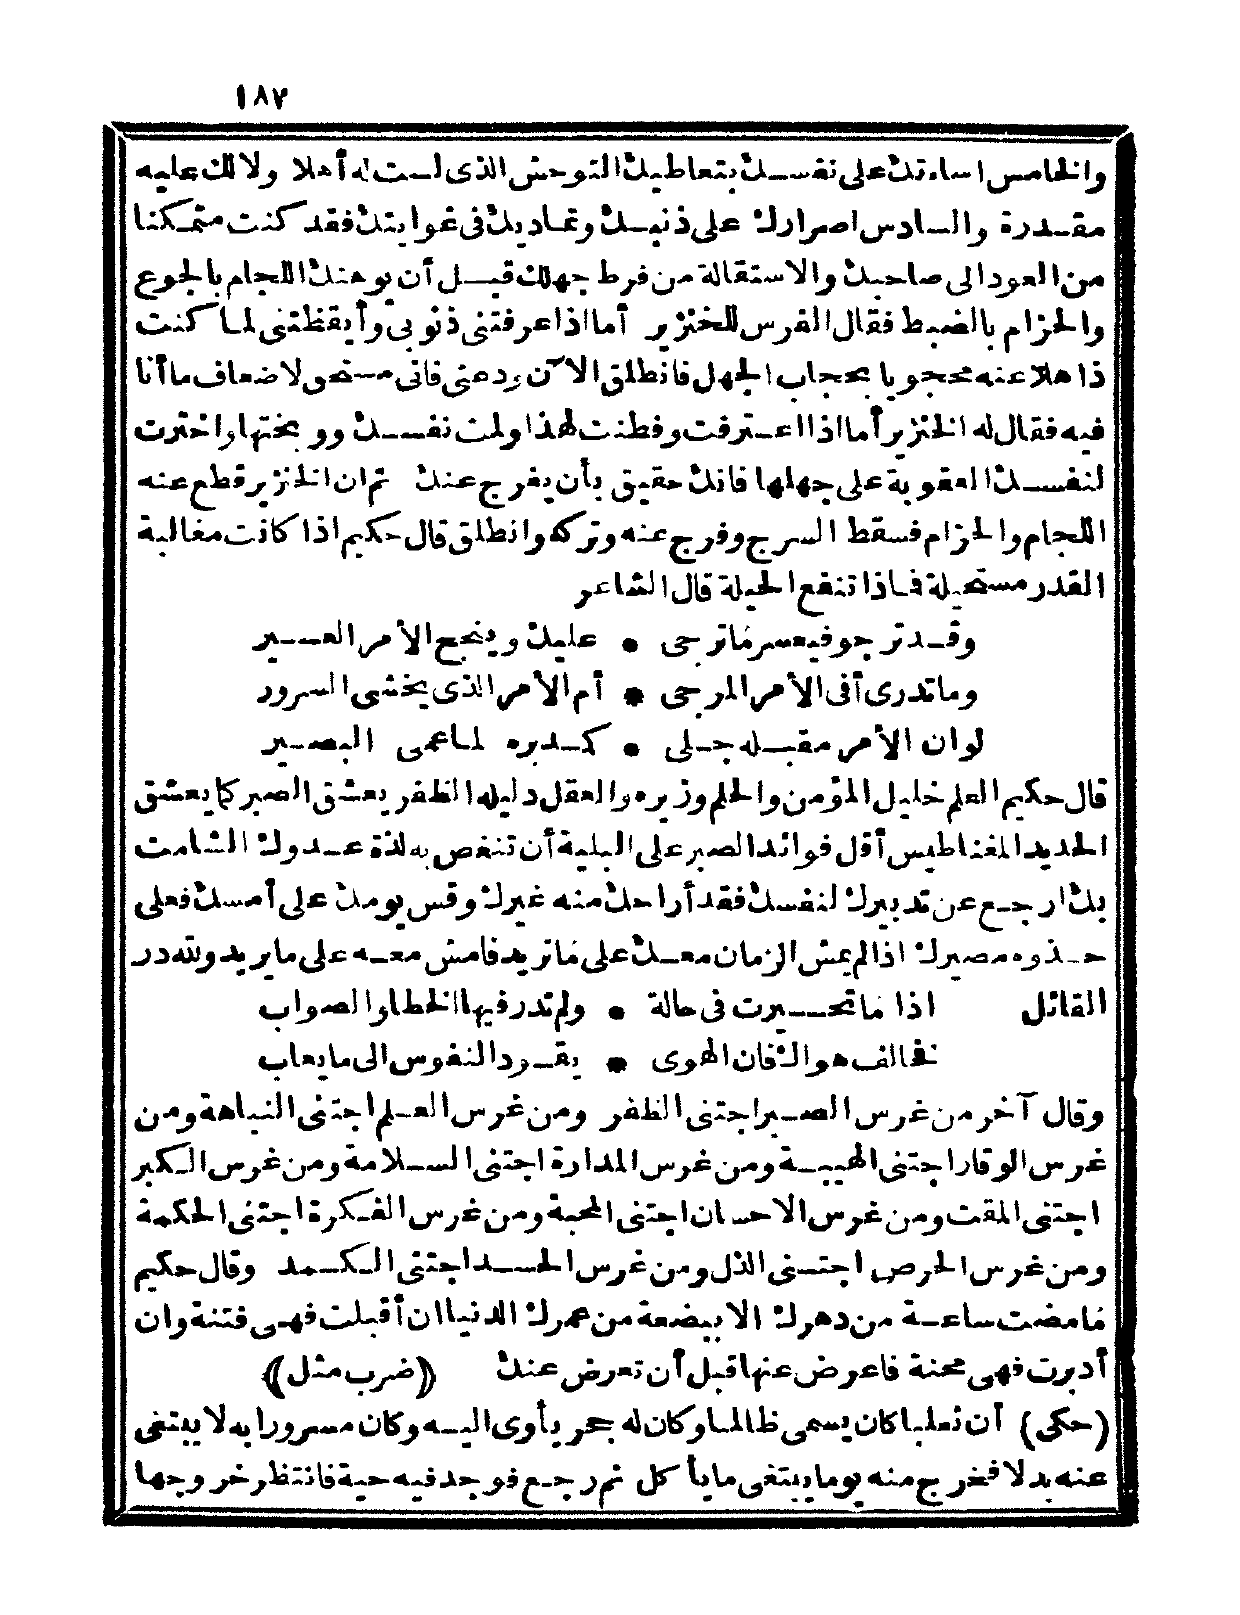 ١٨٧
والخامس اساءتك على نفسك بتعاطيك التوحش الذى لست له أهلا ولا لك عليه
مقدرة والسادس اصرارك على ذنبك وتماديك فى غوايتك فقد كنت متمكنا
من العود الى صاحبك والاستقالة من فرط جهلك قبل أن يوهنك اللجام بالجوع
والحزام بالضبط فقال الفرس للخنزير أما اذا عرفتنى ذنوبى وأيقظتنى لما كنت
ذاهلا عنه محجوبا بحجاب الجهل فانطلق الآن ودعنى فانى مستحق لاضعاف ما أنا
فيه فقال له الخنزير أما اذا اعترفت وفطنت لهذا ولمت نفسك ووبختها واخترت
لنفسك العقوبة على جهلها فانك حقيق بأن يفرج عنك ثم ان الخنزير قطع عنه
اللجام والحزام فسقط السرج وفرج عنه وتركه وانطلق قال حكيم اذا كانت مغالبة
القدر مستحيلة فماذا تنفع الحيلة قال الشاعر
وقد ترجو فيعسر ما ترجى • عليك وينجح الأمر العسير
وما تدرى أفى الأمر المرجى • أم الأمر الذى يخشى السرور
لو ان الأمر مقبله جلى • كمدبره لما عمى البصير
قال حكيم العلم خليل المؤمن والحلم وزيره والعقل دليله الظفر يعشق الصبر كما يعشق
الحديد المغناطيس أقل فوائد الصبر على البلية أن تنغص به لذة عدوك الشامت
بك ارجع عن تدبيرك لنفسك فقد أراحك منه غيرك وقس يومك على أمسك فعلى
حذوه مصيرك اذا لم يمش الزمان معك على ما تريد فامش معه على ما يريد ولله در
القائل اذا ما تحيرت فى حالة • ولم تدر فيها الخطا والصواب
فخالف هواك فان الهوى • يقود النفوس الى ما يعاب
وقال آخر من غرس الصبر اجتنى الظفر ومن غرس العلم اجتنى النباهة ومن
غرس الوقار اجتنى الهيبة ومن غرس المدارة اجتنى السلامة ومن غرس الكبر
اجتنى المقت ومن غرس الاحسان اجتنى المحبة ومن غرس الفكرة اجتنى الحكمة
ومن غرس الحرص اجتنى الذل ومن غرس الحسد اجتنى الكمد وقال حكيم
ما مضت ساعة من دهرك الا ببضعة من عمرك الدنيا ان أقبلت فهى فتنة وان
أدبرت فهى محنة فاعرض عنها قبل أن تعرض عنك ((ضرب مثل))
(حكى) أن ثعلبا كان يسمى ظالما وكان له جحر يأوى اليه وكان مسرورا به لا يبتغى
عنه بدلا فخرج منه يوما يبتغى ما يأكل ثم رجع فوجد فيه حية فانتظر خروجها